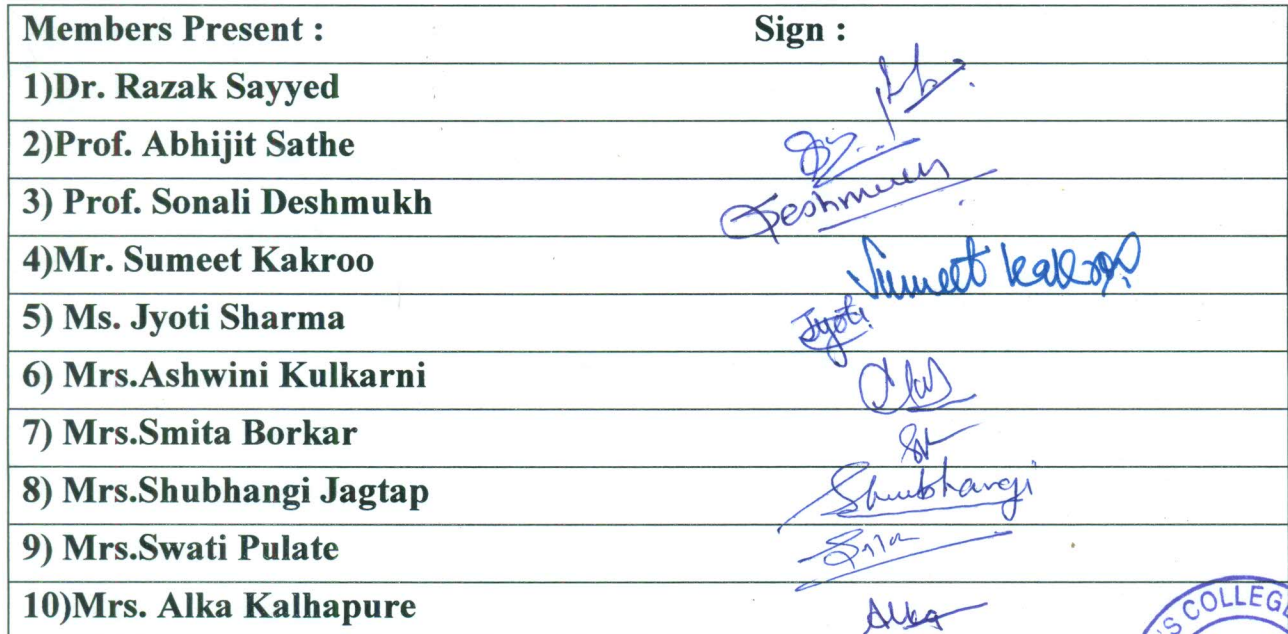 Members Present : Sign :
1)Dr. Razak Sayyed
2)Prof. Abhijit Sathe
3) Prof. Sonali Deshmukh Deshmukh
4)Mr. Sumeet Kakroo Sumeet Kakroo
5) Ms. Jyoti Sharma Jyoti
6) Mrs.Ashwini Kulkarni
7) Mrs.Smita Borkar
8) Mrs.Shubhangi Jagtap Shubhangi
9) Mrs.Swati Pulate
10)Mrs. Alka Kalhapure Alka
COLLEGE